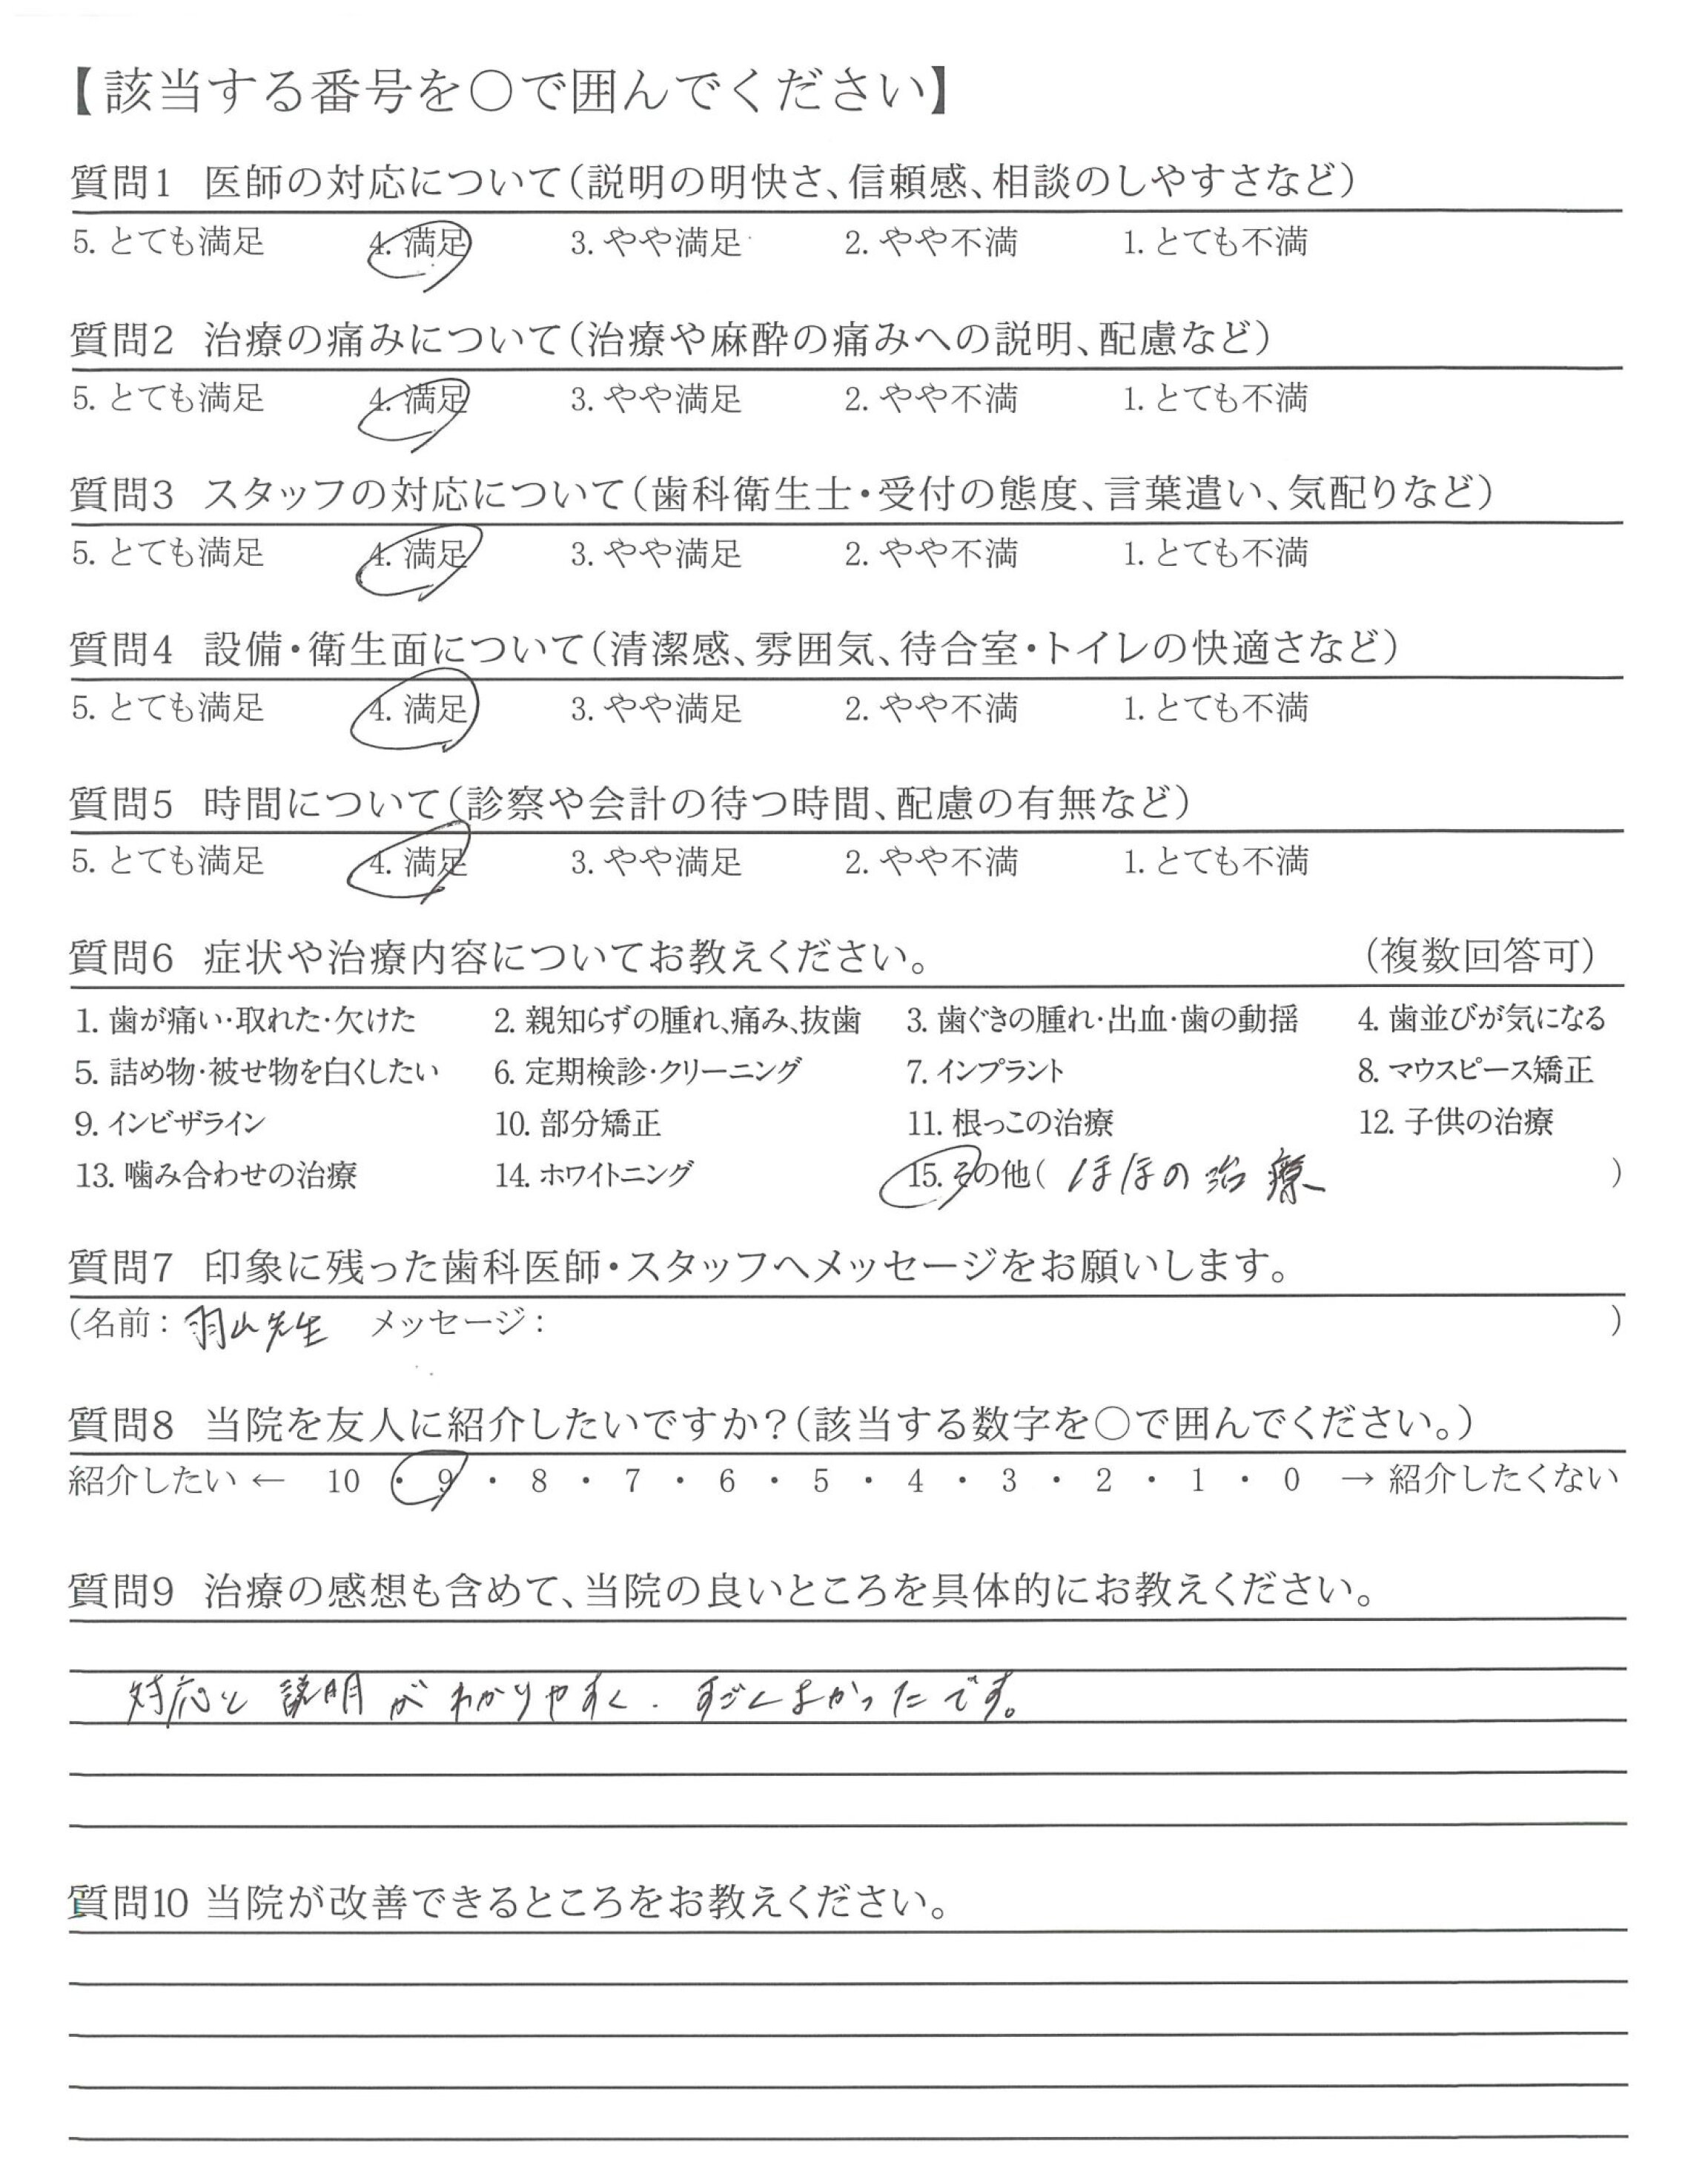 【該当する番号を〇で囲んでください】
質問1 医師の対応について(説明の明快さ、信頼感、相談のしやすさなど)
5. とても満足 4. 満足 3. やや満足 2. やや不満 1. とても不満
質問2 治療の痛みについて(治療や麻酔の痛みへの説明、配慮など)
5. とても満足 4. 満足 3. やや満足 2. やや不満 1. とても不満
質問3 スタッフの対応について(歯科衛生士・受付の態度、言葉遣い、気配りなど)
5. とても満足 4. 満足 3. やや満足 2. やや不満 1. とても不満
質問4 設備・衛生面について(清潔感、雰囲気、待合室・トイレの快適さなど)
5. とても満足 4. 満足 3. やや満足 2. やや不満 1. とても不満
質問5 時間について(診察や会計の待つ時間、配慮の有無など)
5. とても満足 4. 満足 3. やや満足 2. やや不満 1. とても不満
質問6 症状や治療内容についてお教えください。 (複数回答可)
1. 歯が痛い・取れた・欠けた 2. 親知らずの腫れ、痛み、抜歯 3. 歯ぐきの腫れ・出血・歯の動揺 4. 歯並びが気になる
5. 詰め物・被せ物を白くしたい 6. 定期検診・クリーニング 7. インプラント 8. マウスピース矯正
9. インビザライン 10. 部分矯正 11. 根っこの治療 12. 子供の治療
13. 噛み合わせの治療 14. ホワイトニング 15. その他( ほほの治療 )
質問7 印象に残った歯科医師・スタッフへメッセージをお願いします。
(名前: 羽山先生 メッセージ: )
質問8 当院を友人に紹介したいですか?(該当する数字を〇で囲んでください。)
紹介したい ← 10 ・ 9 ・ 8 ・ 7 ・ 6 ・ 5 ・ 4 ・ 3 ・ 2 ・ 1 ・ 0 → 紹介したくない
質問9 治療の感想も含めて、当院の良いところを具体的にお教えください。
対応と説明がわかりやすく. すごくよかったです。
質問10 当院が改善できるところをお教えください。